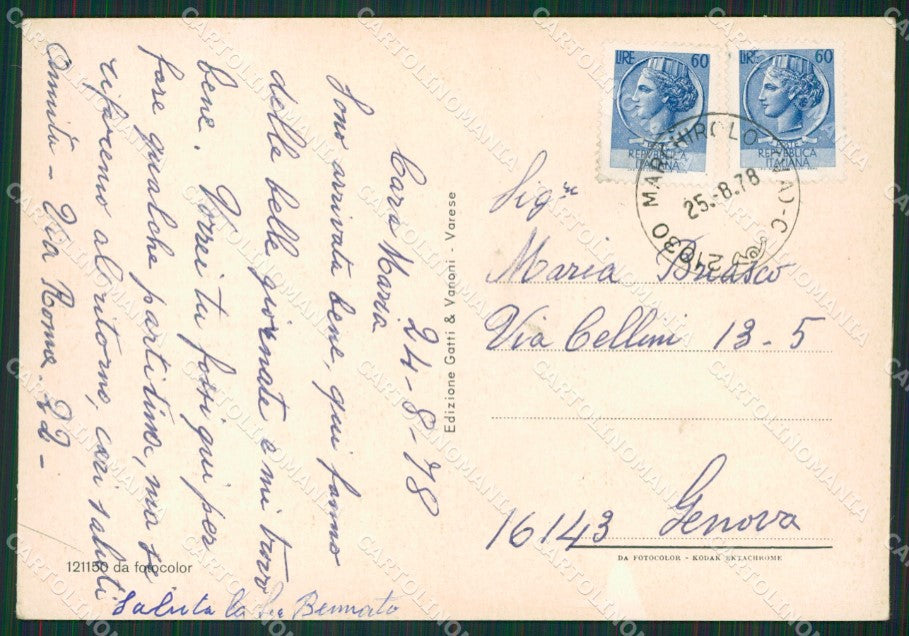 24-8-78
Cara Maria
Sono arrivata bene, qui fanno
delle belle giornate e mi trovo
bene. Vorrei tu fossi qui per
fare qualche partitina, ma se
rifaremo al ritorno, cari saluti
Via Roma 22 -
Saluta la Bennato
121150 da fotocolor
Edizione Gatti & Vanoni - Varese
LIRE 60
REPVBBLICA
ITALIANA
LIRE 60
REPVBBLICA
ITALIANA
21030 MARCHIROLO (VA) - C
25.-8.78
Sig.ra
Maria Briasco
Via Cellini 13-5
16143 Genova
DA FOTOCOLOR - KODAK EKTACHROME
CARTOLINOMANIA